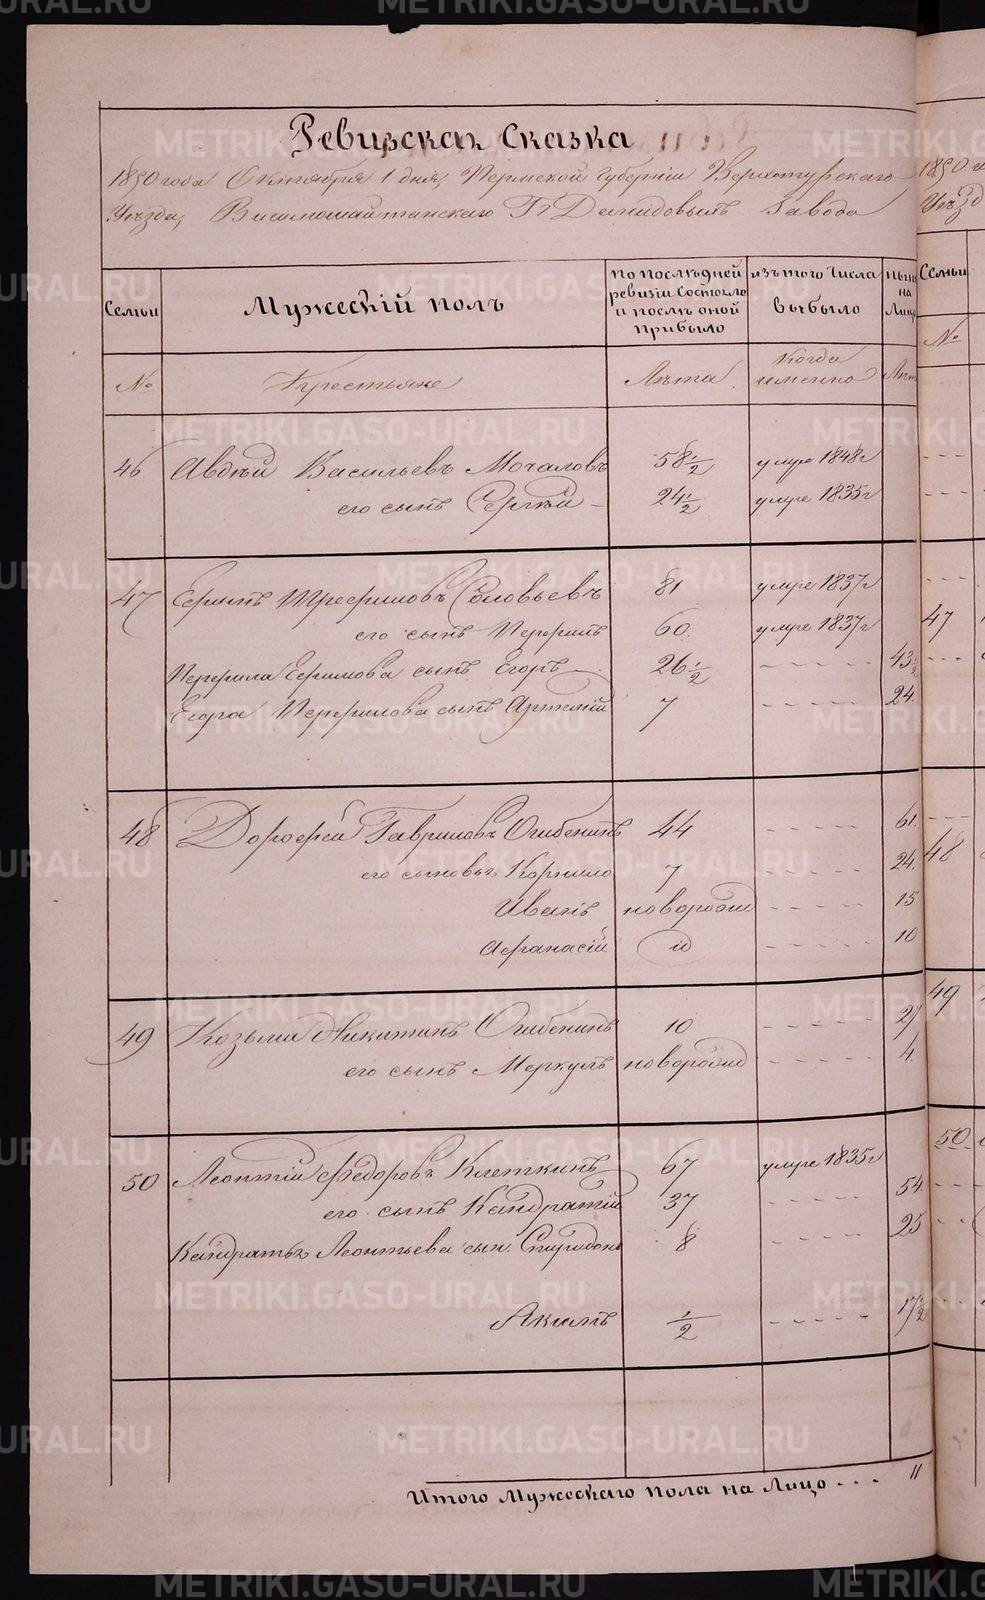 Ревизская Сказка
1850 года Октября 1 дня, Пермской Губерніи Верхотурскаго
Уѣзда, Висимошайтанскаго Гг Демидовыхъ Завода
Семьи
Мужескій полъ
по послѣдней
ревизіи состояло
и послѣ оной
прибыло
изъ того числа
выбыло
нынѣ
на
Лицо
№
Крестьяне
Лѣта
Когда
именно
Лѣт
46 Авдѣй Васильевъ Мочаловъ 58 1/2 умре 1848г
его сынъ Сергѣй - 24 1/2 умре 1835г
47 Ефимъ Перфиловъ Соловьевъ 81 умре 1837г
его сынъ Перфилъ 60 умре 1837г
Перфила Ефимова сынъ Егоръ 26 1/2 - - - - - 43 1/2
Егора Перфилова сынъ Артемій 7 - - - - - 24
48 Дорофей Гавриловъ Огибенинъ 44 - - - - - 61
его сыновья Корнило 7 - - - - - 24
Иванъ новорожд - - - - - 15
Афанасій - - - - - 10
49 Козьма Никитинъ Огибенинъ 10 - - - - - 27
его сынъ Меркулъ новорожд - - - - - 4
50 Леонтій Федоровъ Клеткинъ 67 умре 1835г
его сынъ Кандратій 37 - - - - - 54
Кандратья Леонтьева сын. Спиридонъ 8 - - - - - 25
Акимъ 1/2 - - - - - 17 1/2
Итого Мужескаго пола на Лицо - - - 11
1850
Уѣзд
Семьи
№
47
48
49
50
METRIKI.GASO-URAL.RU